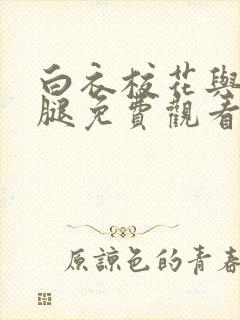 白衣校花與
腿免費觀看
原諒色的青春